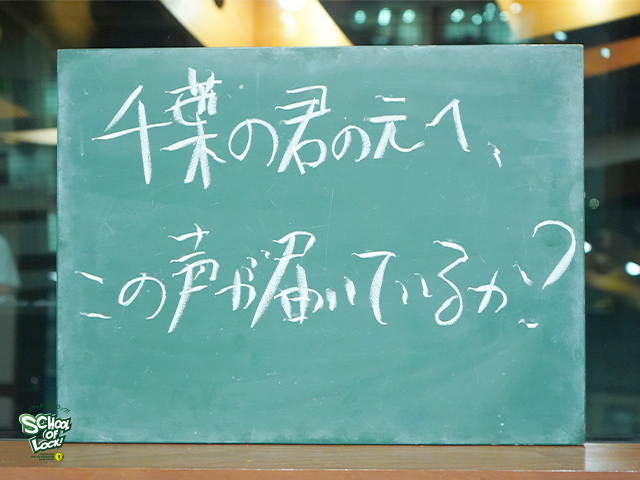 千葉の君の元へ、
この声が届いているか?
SCHOOL
OF
LOCK!